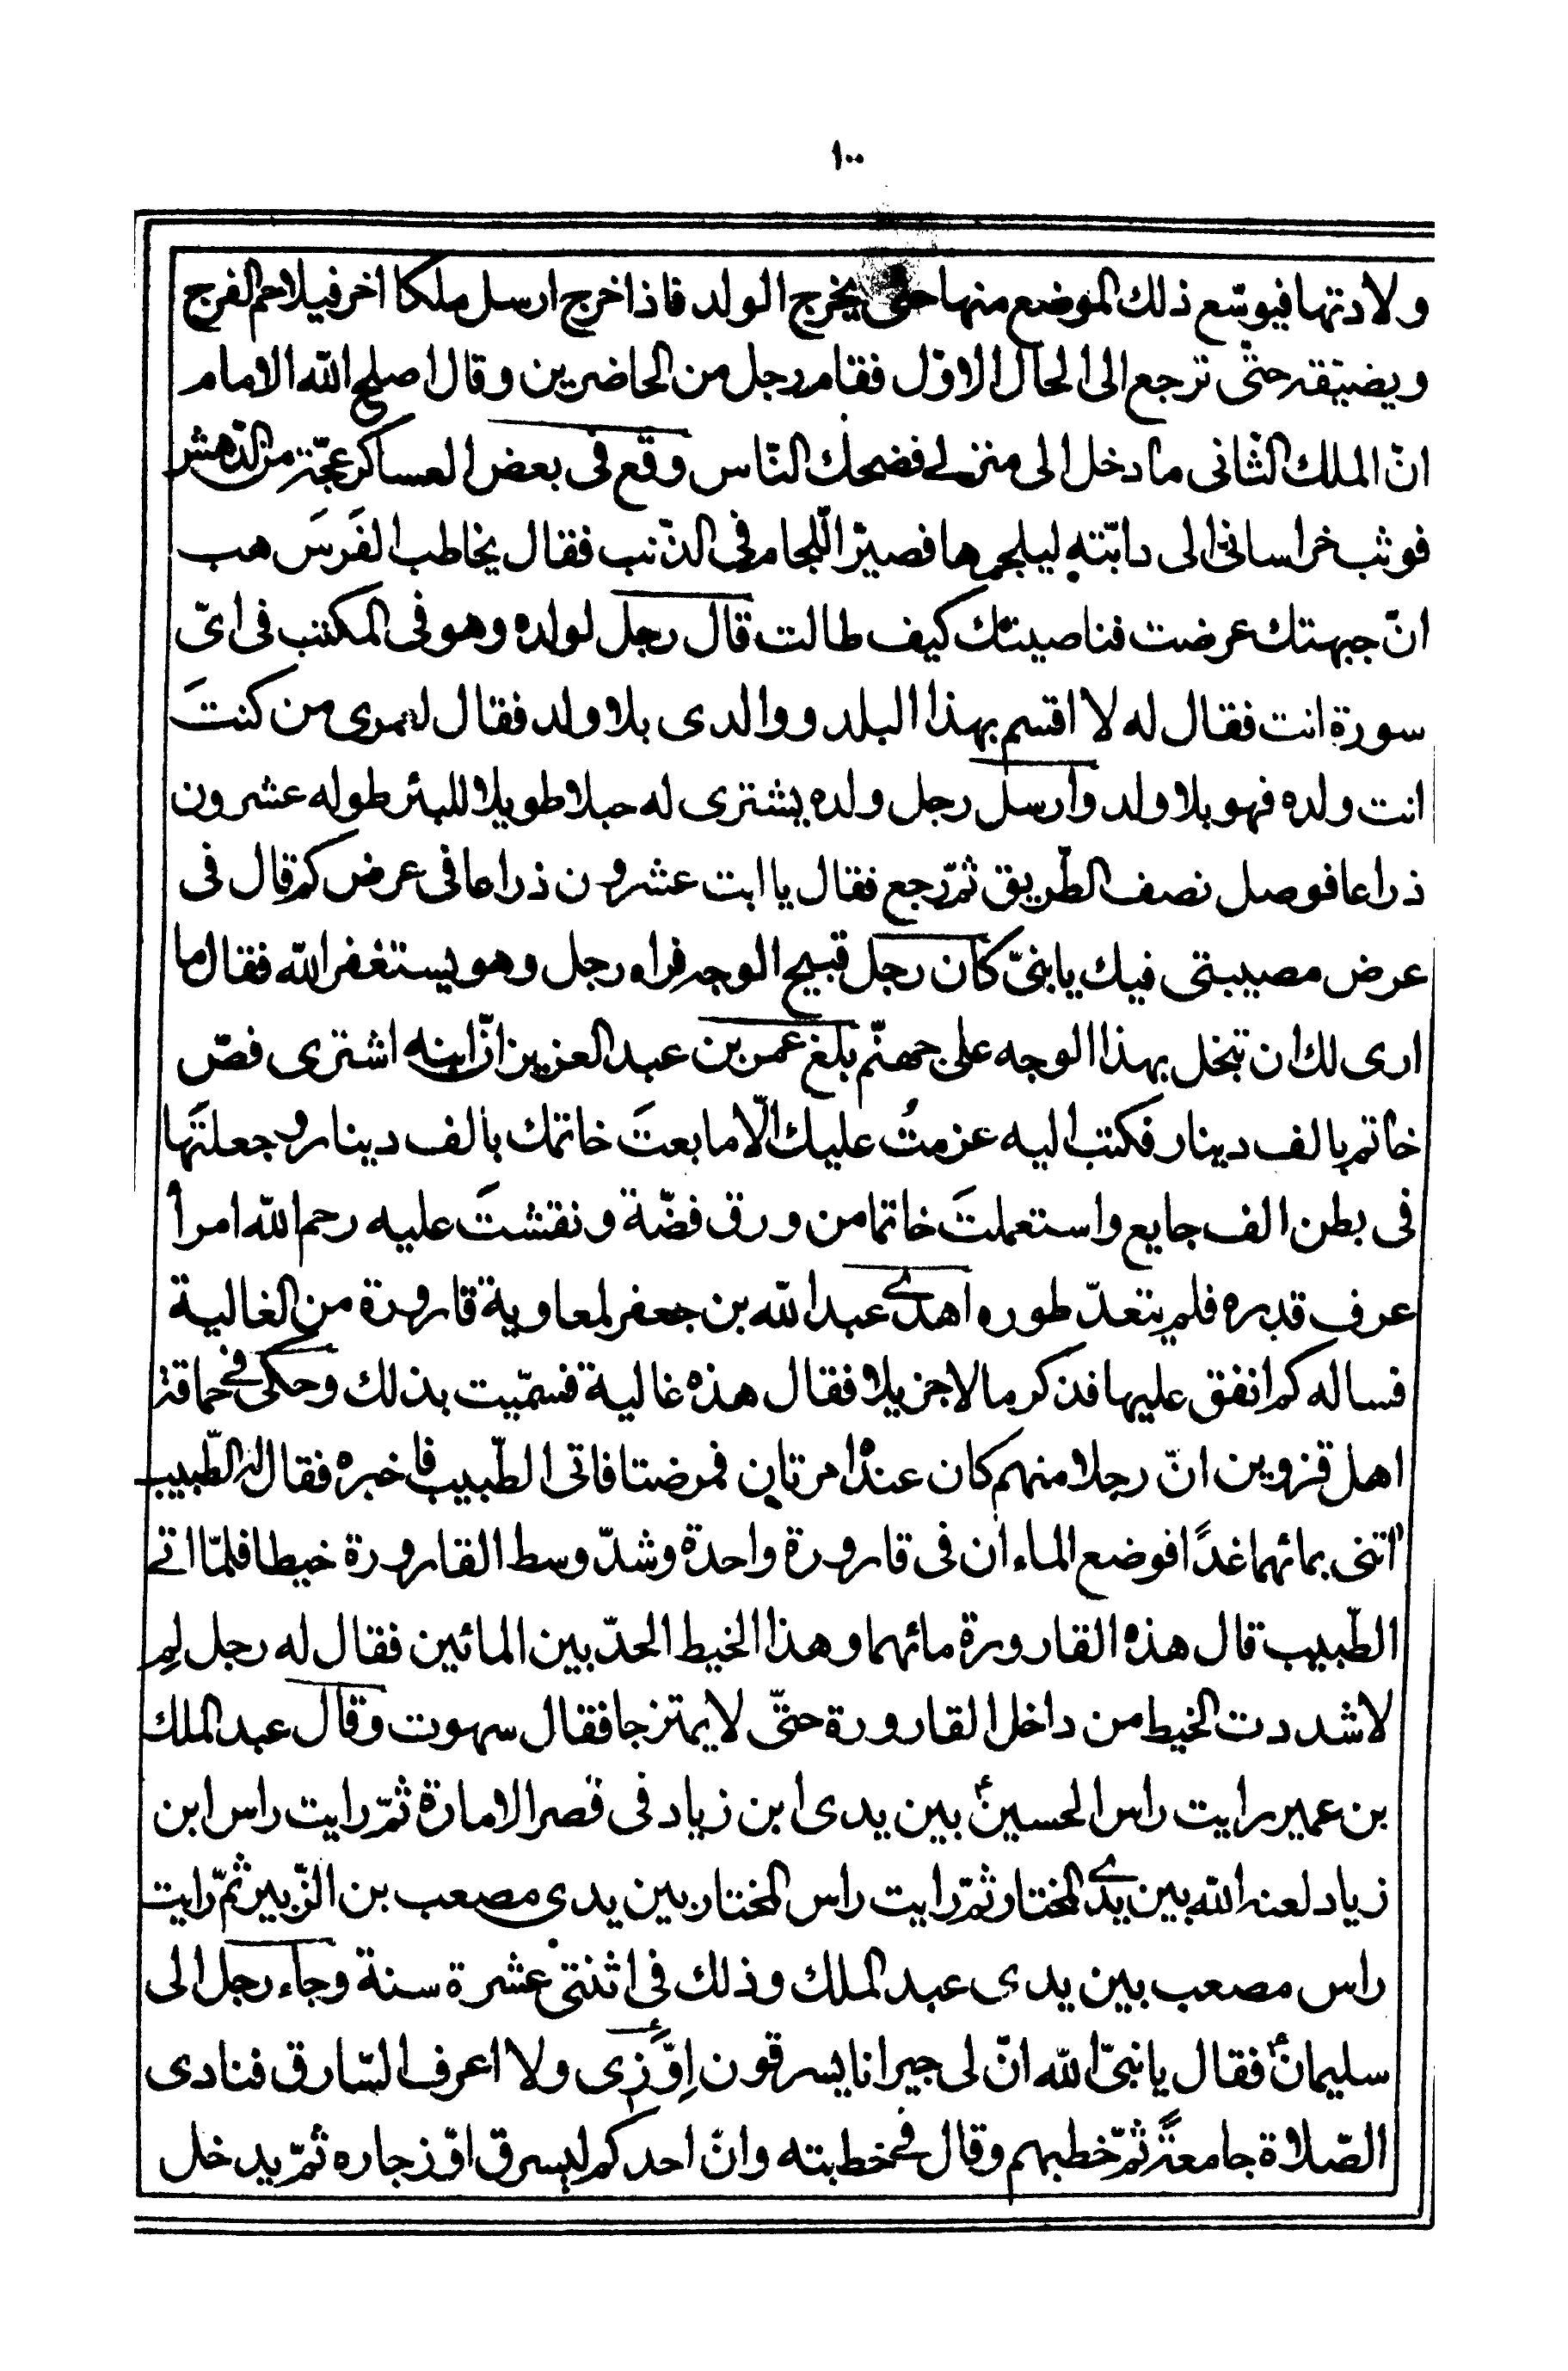 ١٠٠
ولادتها فيوسّع ذلك الموضع منها حتى يخرج الولد فاذا خرج ارسل ملكا اخر فيلاحم الفرج
ويضيّقه حتّى ترجع الى الحال الاوّل فقام رجل من الحاضرين وقال اصلح الله الامام
انّ الملك الثّانى ما دخل الى منزلى فضحك النّاس وقع فى بعض العساكر عجّة من الدّهش
فوثب خراسانىّ الى دابّته ليلجمها فصيّر اللّجام فى الذّنب فقال يخاطب الفَرَسَ هب
انّ جبهتك عرضت فناصيتك كيف طالت قال رجل لولده وهو فى المكتب فى اىّ
سورة انت فقال له لا اقسم بهذا البلد ووالدى بلا ولد فقال لعمرى من كنتَ
انت ولده فهو بلا ولد وارسل رجل ولده يشترى له حبلا طويلا للبئر طوله عشرون
ذراعا فوصل نصف الطّريق ثمّ رجع فقال يا ابت عشرون ذراعا فى عرض كم قال فى
عرض مصيبتى فيك يا بنىّ كان رجل قبيح الوجه فراه رجل وهو يستغفر الله فقال ما
ارى لك ان تبخل بهذا الوجه على جهنّم بلغ عمر بن عبد العزيز انّ ابنه اشترى فصّ
خاتم بالف دينار فكتب اليه عزمتُ عليك الّا ما بعتَ خاتمك بالف دينار وجعلتَها
فى بطن الف جايع واستعملتَ خاتما من ورق فضّة ونقشتَ عليه رحم الله امرأ
عرف قدره فلم يتعدّ طوره اهدى عبد الله بن جعفر لمعاوية قارورة من الغالية
فساله كم انفق عليها فذكر مالا جزيلا فقال هذه غالية فسمّيت بذلك وحكى فى حماقة
اهل قزوين انّ رجلا منهم كان عنده امرتان فمرضتا فاتى الطّبيب فاخبره فقال له الطّبيب
ائتنى بمائهما غدًا فوضع الماءان فى قارورة واحدة وشدّ وسط القارورة خيطا فلمّا اتى
الطّبيب قال هذه القارورة مائهما وهذا الخيط الحدّ بين المائين فقال له رجل لِم
لا شددت الخيط من داخل القارورة حتّى لا يمتزجا فقال سهوت وقال عبد الملك
بن عمير رايت راس الحسينؑ بين يدى ابن زياد فى قصر الامارة ثمّ رايت راس ابن
زياد لعنه الله بين يدى المختار ثمّ رايت راس المختار بين يدى مصعب بن الزّبير ثمّ رايت
راس مصعب بين يدى عبد الملك وذلك فى اثنتى عشرة سنة وجاء رجل الى
سليمانؑ فقال يا نبىّ الله انّ لى جيرانا يسرقون اِوَّزى ولا اعرف السّارق فنادى
الصّلاة جامعةً ثمّ خطبهم وقال فى خطبته وانّ احدكم ليسرق اوّز جاره ثمّ يدخل